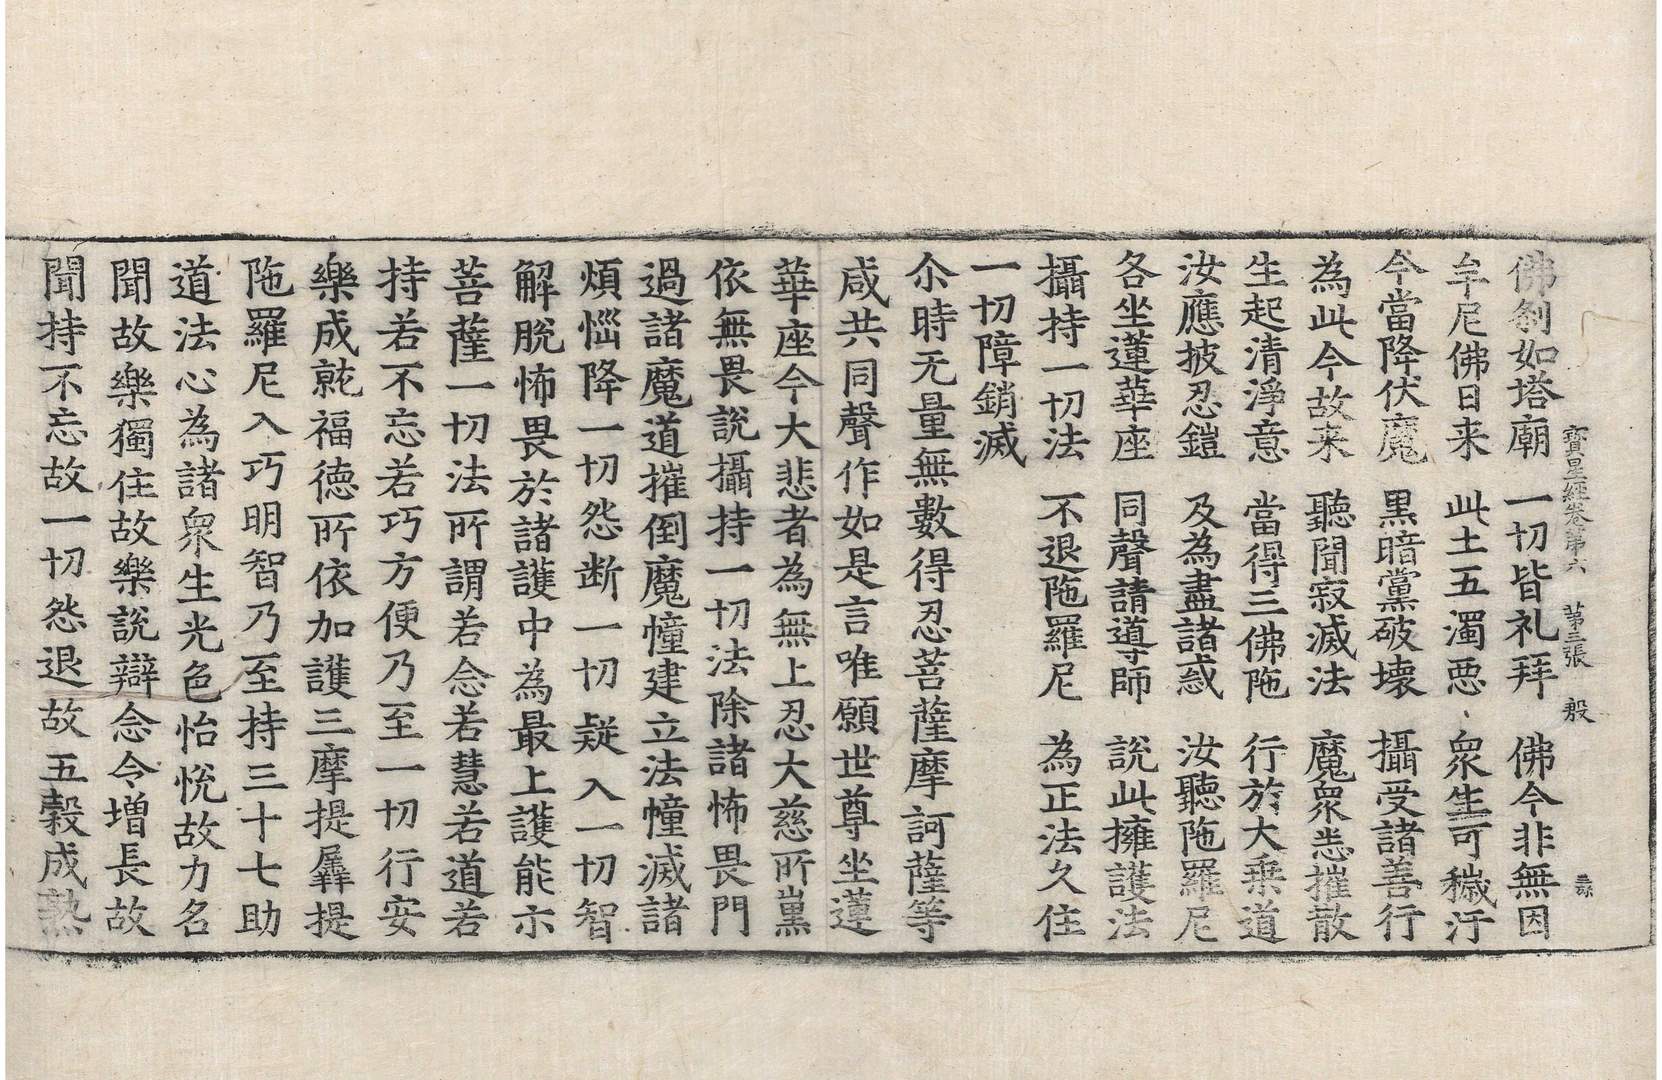 寶星經卷第六　第三張　殷
佛刹如塔廟　一切皆礼拜　佛今非無因
牟尼佛日来　此土五濁惡　衆生可穢汙
今當降伏魔　黑暗黨破壊　攝受諸善行
為此今故来　聽聞寂滅法　魔衆悉摧散
生起清淨意　當得三佛陁　行於大乗道
汝應披忍鎧　及為盡諸惑　汝聽陁羅尼
各坐蓮華座　同聲請導師　說此擁護法
攝持一切法　不退陁羅尼　為正法久住
一切障銷滅
尒時无量無數得忍菩薩摩訶薩等
咸共同聲作如是言唯願世尊坐蓮
華座今大悲者為無上忍大慈所熏
依無畏說攝持一切法除諸怖畏門
過諸魔道摧倒魔幢建立法幢滅諸
煩惱降一切怨断一切疑入一切智
解脫怖畏於諸護中為最上護能示
菩薩一切法所謂若念若慧若道若
持若不忘若巧方便乃至一切行安
樂成就福德所依加護三摩提羼提
陁羅尼入巧明智乃至持三十七助
道法心為諸衆生光色怡悅故力名
聞故樂獨住故樂說辯念令增長故
聞持不忘故一切怨退故五穀成熟